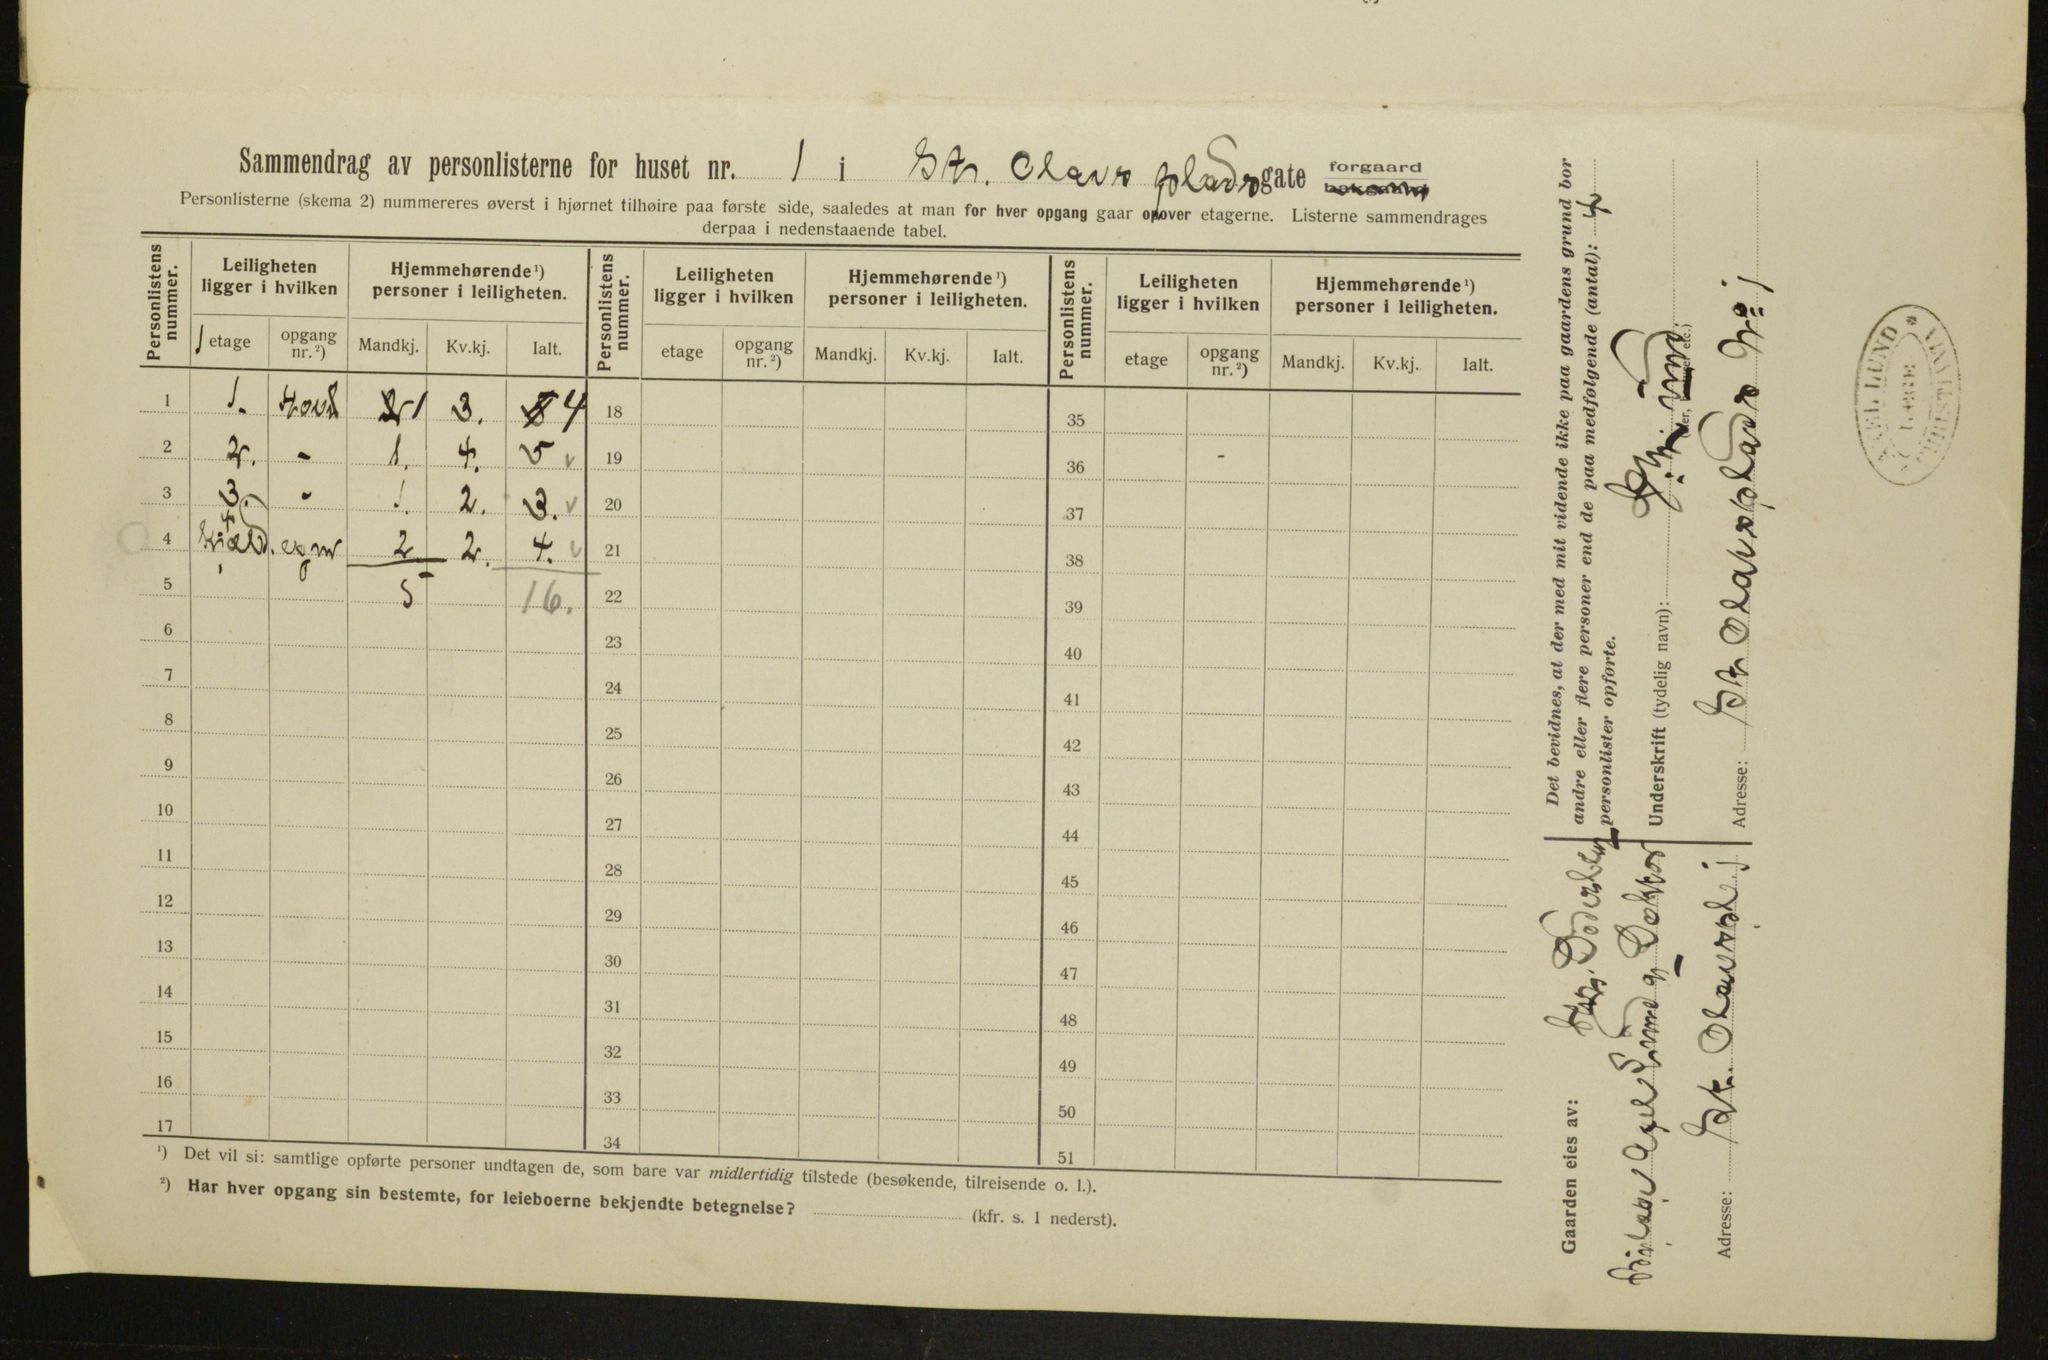 Sammendrag av personlisterne for huset nr. 1 i St. Olavs plads gate forgaard bakgaard
Personlisterne (skema 2) nummereres øverst i hjørnet tilhøire paa første side, saaledes at man for hver opgang gaar opover etagerne. Listerne sammendrages
derpaa i nedenstaaende tabel.
Personlistens nummer. Leiligheten ligger i hvilken Hjemmehørende ¹) personer i leiligheten. Personlistens nummer. Leiligheten ligger i hvilken Hjemmehørende ¹) personer i leiligheten. Personlistens nummer. Leiligheten ligger i hvilken Hjemmehørende ¹) personer i leiligheten.
etage opgang nr. ²) Mandkj. Kv.kj. Ialt. etage opgang nr. ²) Mandkj. Kv.kj. Ialt. etage opgang nr. ²) Mandkj. Kv.kj. Ialt.
1 1. Hovd 2 1 3. 5 4 18 35
2 2. - 1. 4. 5 v 19 36 -
3 3. - 1. 2. 3. v 20 37
4 Kjæld. egen 2 2. 4. v 21 38
5 5 16. 22 39
6 23 40
7 24 41
8 25 42
9 26 43
10 27 44
11 28 45
12 29 46
13 30 47
14 31 48
15 32 49
16 33 50
17 34 51
¹) Det vil si: samtlige opførte personer undtagen de, som bare var midlertidig tilstede (besøkende, tilreisende o. l.).
²) Har hver opgang sin bestemte, for leieboerne bekjendte betegnelse? (kfr. s. 1 nederst).
Det bevidnes, at der med mit vidende ikke paa gaardens grund bor
andre eller flere personer end de paa medfølgende (antal): 4
personlister opførte.
Underskrift (tydelig navn): Lund
Adresse: St Olavsplads No 1
Gaarden eies av:
Axel Lund og Doktor
Adresse: St. Olavspl. 1
AXEL LUND
LÆGE
CHRISTIANIA